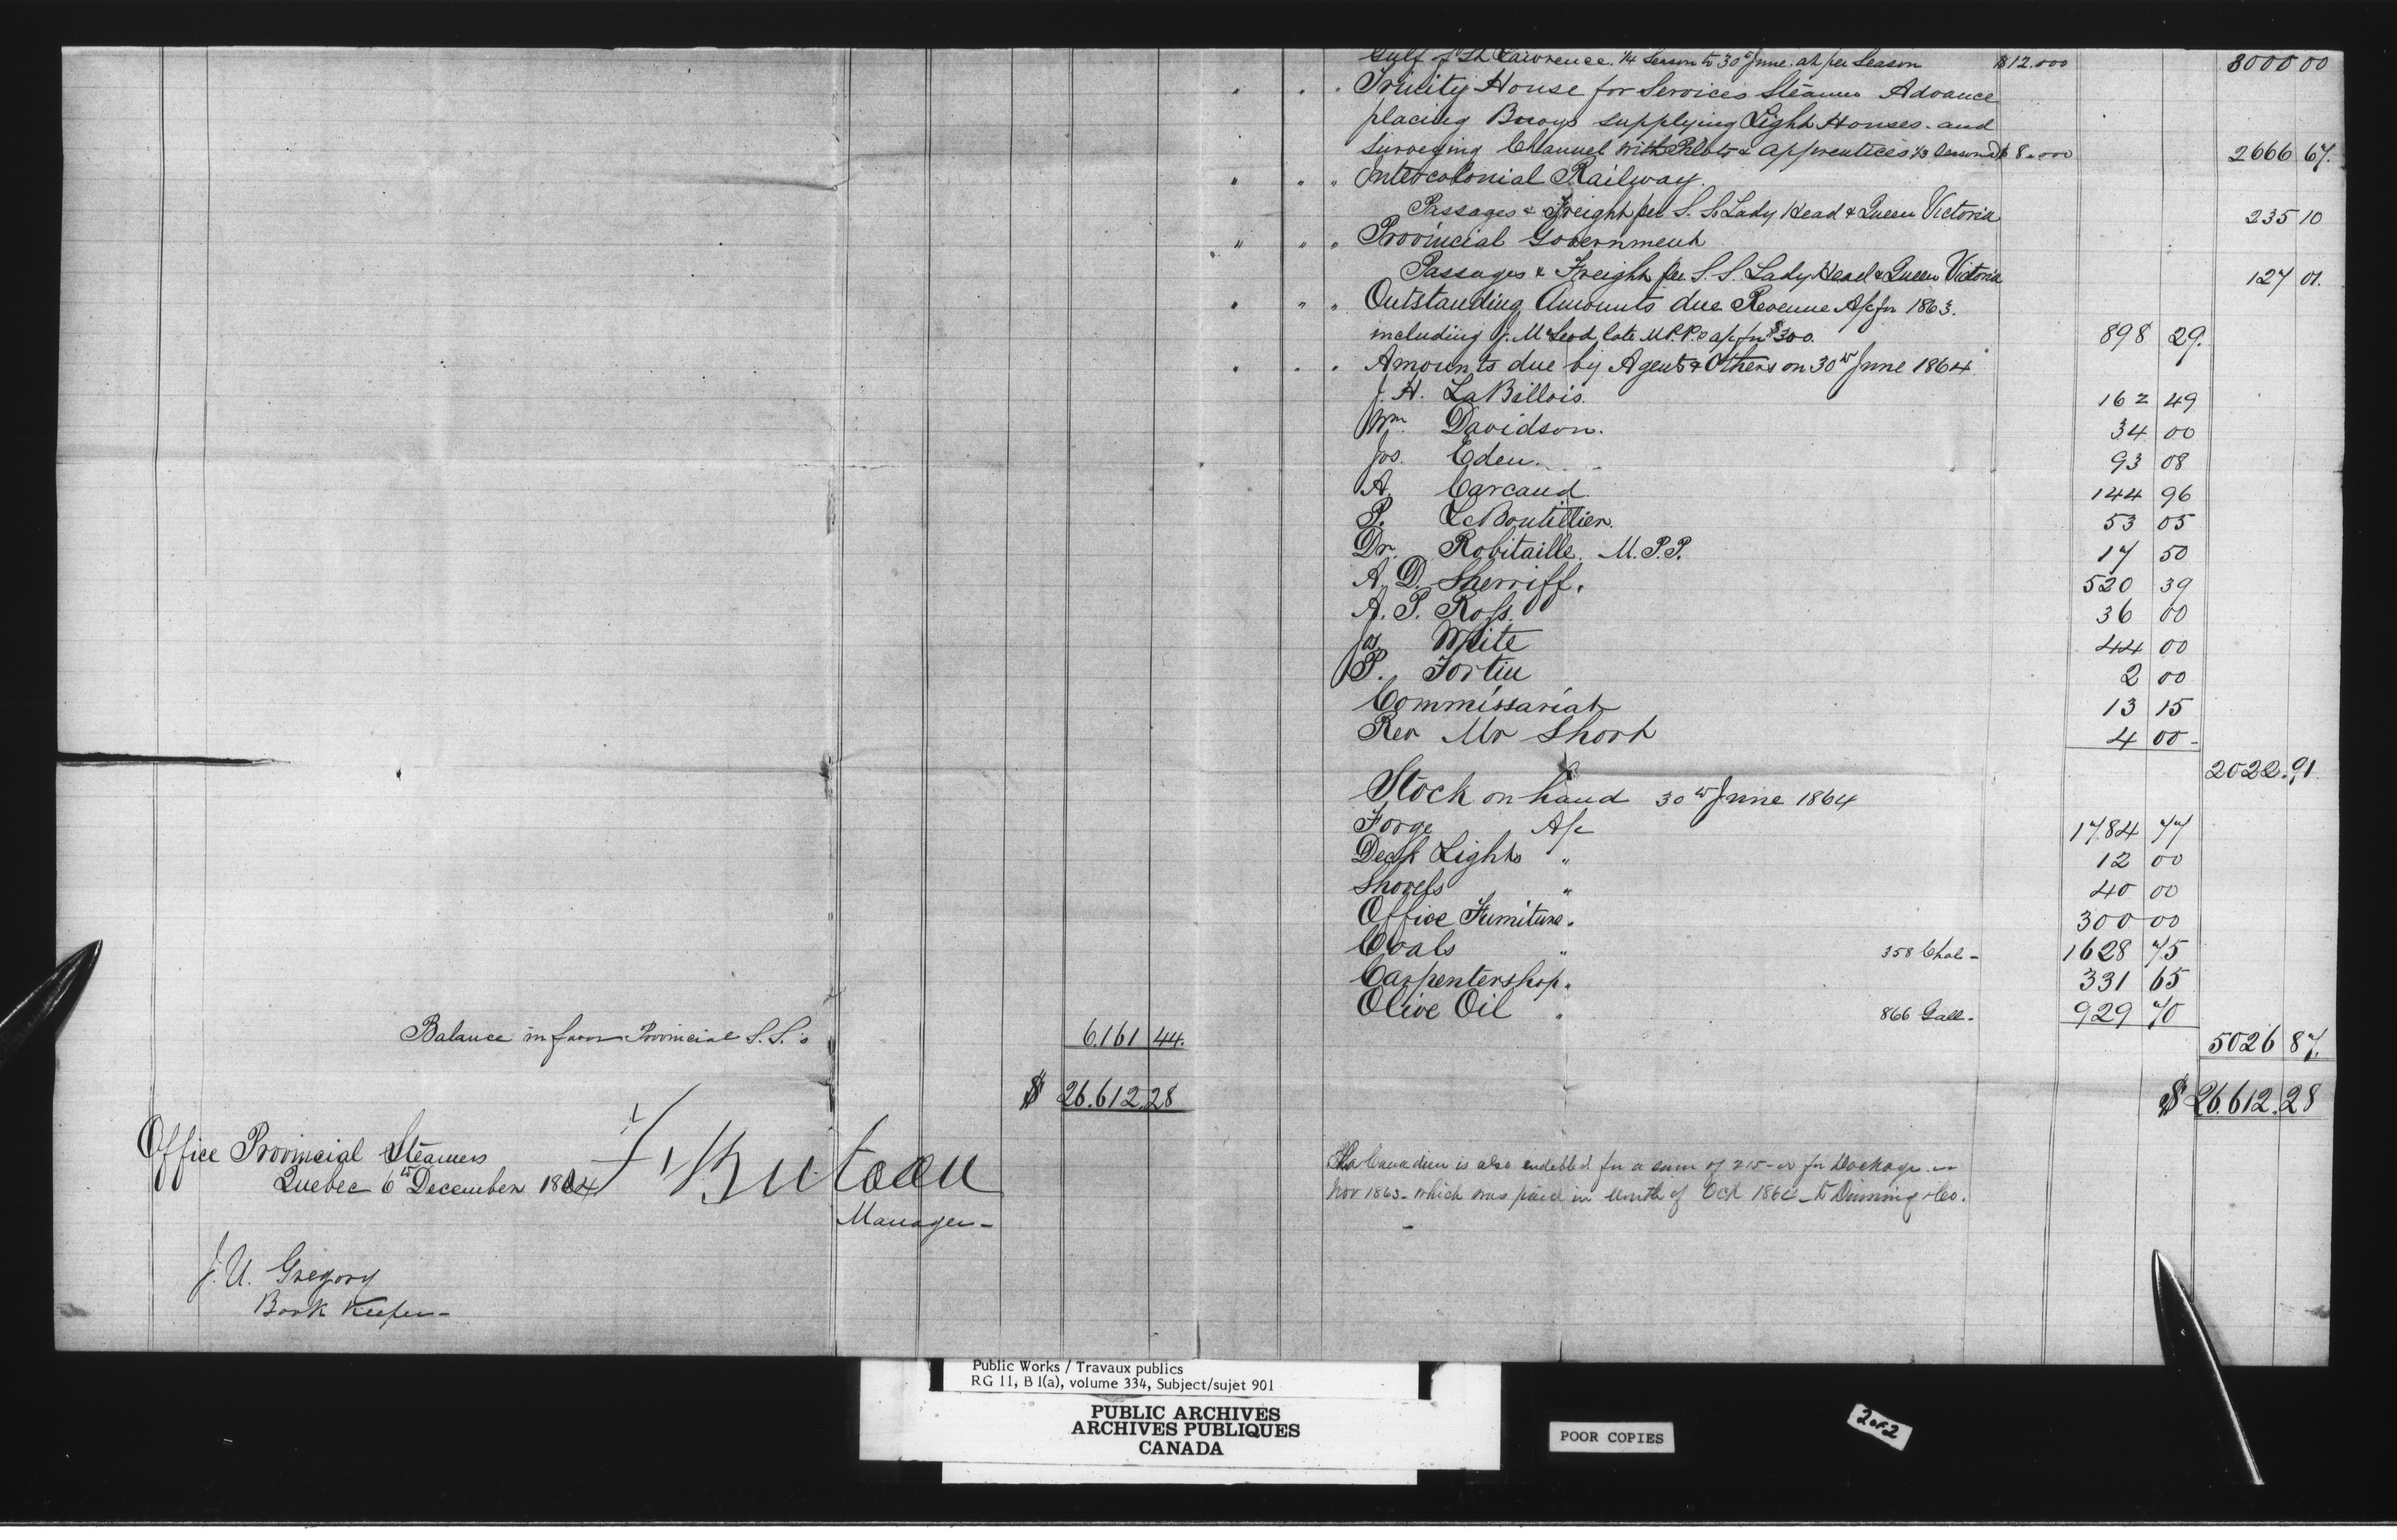 Balance in favor Provincial S.S.'s 6.161 44.
$ 26.612.28
Office Provincial Steamers
Quebec 6th December 1864
F. Buteau
Manager -
J. U. Gregory
Book Keeper -
Gulf of St Lawrence. 1/4 Season to 30th June. at per Season $12.000 3000 00
" " " Trinity House for Services Steamer Advance
placing Buoys supplying Light Houses. and
Surveying Channel with Pilots & apprentices 1/3 Season @ $8.000 2666 67.
" " " Intercolonial Railway.
Passages & Freight per S. S. Lady Head & Queen Victoria 235 10
" " " Provincial Government
Passages & Freight per S. S. Lady Head & Queen Victoria 127 01.
" " " Outstanding Amounts due Revenue A/c for 1863.
including J. McLeod late M.P.P.s a/c for $300. 898 29.
" " " Amounts due by Agents & Others on 30th June 1864
J. H. LaBillois. 162 49
Wm Davidson. 34 00
Jos. Eden. 93 08
A. Carcaud. 144 96
P. LeBoutillier. 53 05
Dr. Robitaille. M.P.P. 17 50
A. D. Sherriff. 520 39
A. P. Ross. 36 00
Jos. White 44 00
P. Fortin 2 00
Commissariat 13 15
Rev Mr Short 4 00 -
2022.91
Stock on hand 30th June 1864
Forge A/c 1784 77
Deck Lights " 12 00
Shovels " 40 00
Office Furniture " 300 00
Coals " 358 Chal - 1628 75
Carpentershop " 331 65
Olive Oil " 866 Gall - 929 70
5026 87.
$ 26.612.28
The Canadian is also endebted for a sum of 215-00 for Dockage in
Nov 1863 - which was paid in month of Oct 1864 - to Dinning & Co.
Public Works / Travaux publics
RG 11, B 1(a), volume 334, Subject/sujet 901
PUBLIC ARCHIVES
ARCHIVES PUBLIQUES
CANADA
POOR COPIES
2 of 2